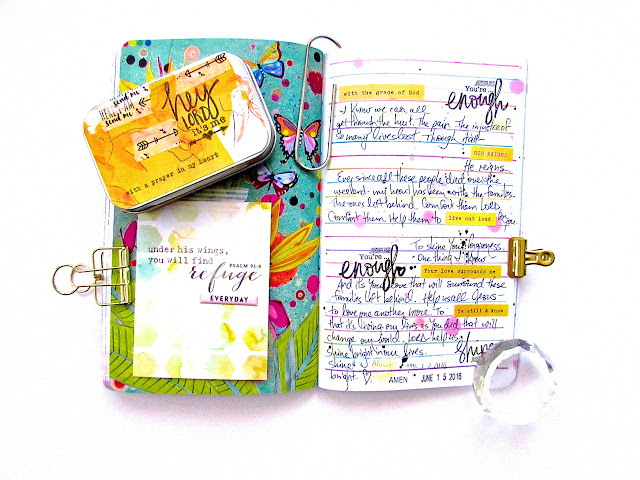 HERE I AM
send me
send me
hey
Lord
it's me
with a prayer in my heart
under his wings,
you will find
PSALM 91:4
refuge
EVERYDAY
with the grace of God
You're
enough
I know we can all
get through the hurt. The pain. The injustice of
so many lives lost through hate
GOD REIGNS
He reigns
Ever since all these people died over the
weekend my heart has been with the families.
The ones left behind. Comfort them Lord.
Comfort them. Help them to live out loud for you
To shine your forgiveness.
One thing I know
You're
enough
Your love surrounds me
And it's your love that will surround these
families left behind. Help us all Jesus
to love one another more. To be still & know
that it's living our lives as you did that will
change our world. Lord help us
shine bright in our lives. shine
shine
bright.
AMEN JUNE 15 2016